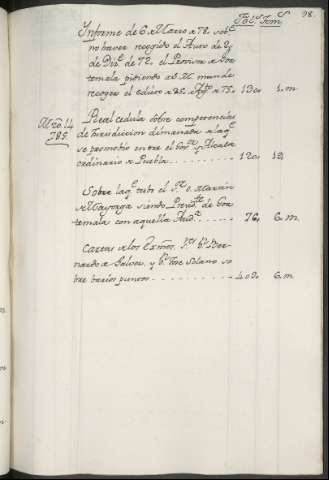 98.
Fol.s Tom.s
Informe de 6 de Marzo de 78. sob.e
no haver recogido el Auto de 2,
de Diz.e de 72. el Provisor de Goa-
temala pidiendo a S. M. mande
recoger el edicto de 25. Ag.to de 75. 130. 1. m.
Mzo 14 Real cedula sobre competencias
785. de Jurisdiccion dimanada de la q.e
se promovio entre el Gov.or y Alcalde
ordinario de Puebla . . . . . . . . . 120. 12,
Sobre la q.e tubo el S.r D. Martin
de Mayorga siendo Presid.te de Goa-
temala con aquella Aud.a . . . . . 76, 6. m.
Cartas de los Exmos. S.res D.n Ber-
nardo de Galvez, y D.n Jose Solano so-
bre varios puntos . . . . . . . . . . 409. 6. m